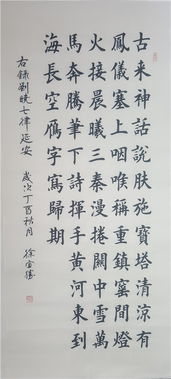 古来神話說肤施寶塔清涼有
鳳儀塞上咽喉稱重鎮窰間燈
火接晨曦三秦漫捲關中雪萬
馬奔騰筆下詩揮手黃河東到
海長空雁字寫歸期
右錄劉曉七律延安 歲次丁酉秋月 徐